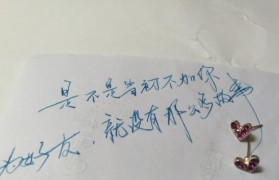 是不是当初不加你
为好友，就没有那么多故事